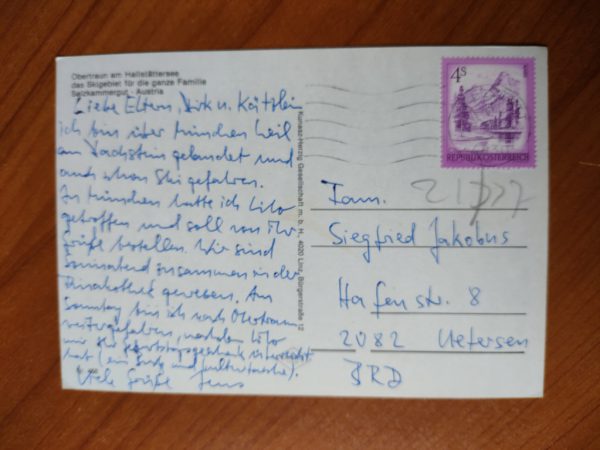 Obertraun am Hallstättersee
das Skigebiet für die ganze Familie
Salzkammergut - Austria
Liebe Eltern, Dirk u. Kätzlein
ich bin über München heil
am Dachstein gelandet und
auch schon Ski gefahren.
In München hatte ich Lilo
getroffen und soll von ihr
Grüße bestellen. Wir sind
Sonnabend zusammen in der
Pinakothek gewesen. Am
Sonntag bin ich nach Obertraun
weitergefahren, nachdem Lilo
mir ihr Geburtstagsgeschenk überreicht
hat (ein und
Viele Grüße Jens
Kunaaz-Herzig Gesellschaft m. b. H., 4020 Linz, Bürgerstraße 12
4 S
REPUBLIK ÖSTERREICH
Fam.
Siegfried Jakobus
Hafenstr. 8
2082 Uetersen
BRD